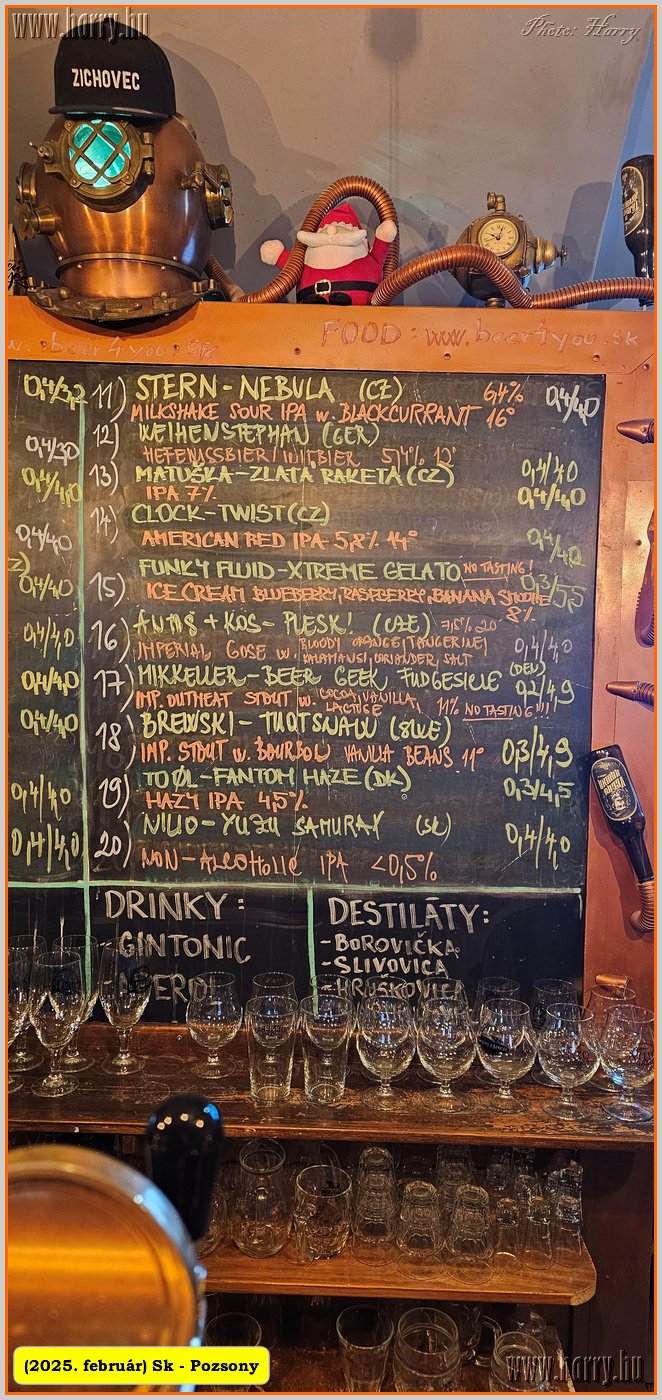 www.horry.hu
Photo: Horry
ZICHOVEC
beer4you.sk
FOOD: www.beer4you.sk
0,4/3,2
11) STERN-NEBULA (CZ) 6,4% 0,4/4,0
MILKSHAKE SOUR IPA w. BLACKCURRANT 16°
0,4/3,0
12) WEIHENSTEPHAN (GER)
HEFEWSSBIER/WITBIER 5,4% 12° 0,4/4,0
0,4/4,0
13) MATUŠKA-ZLATÁ RAKETA (CZ) 0,4/4,0
IPA 7%
14) CLOCK-TWIST (CZ)
0,4/4,0
AMERICAN RED IPA 5,8% 14° 0,4/4,0
FUNKY FLUID-XTREME GELATO NO TASTING! 0,3/5,5
0,4/4,0
15) ICE CREAM BLUEBERRY, RASPBERRY, BANANA SMOOTIE 8%
16) + KOS- PLESK! (CZE) 7,5% 20°
0,4/4,0
IMPERIAL GOSE w. BLOODY ORANGE, TANGERINE, 0,4/4,0
KALAMANSI, CORIANDER, SALT
17) MIKKELLER-BEER GEEK FUDGESICLE (DEN)
0,4/4,0
IMP. OUTMEAT STOUT w. COCOA, VANILLA, LACTOSE 11% NO TASTING!!! 0,2/4,9
0,4/4,0
18) BREWSKI- (SWE)
IMP. STOUT w. BOURBON VANILLA BEANS 11° 0,3/4,9
TO ØL-FANTOM HAZE (DK) 0,3/4,5
0,4/4,0
19) HAZY IPA 4,5%
NILIO-YUZU SAMURAY (SK)
0,4/4,0
20) 0,4/4,0
NON-ALCOHOLIC IPA <0,5%
DRINKY:
-GINTONIC
DESTILÁTY:
-BOROVIČKA
-SLIVOVICA
-HRUŠKOVICA
(2025. február) Sk - Pozsony
www.horry.hu